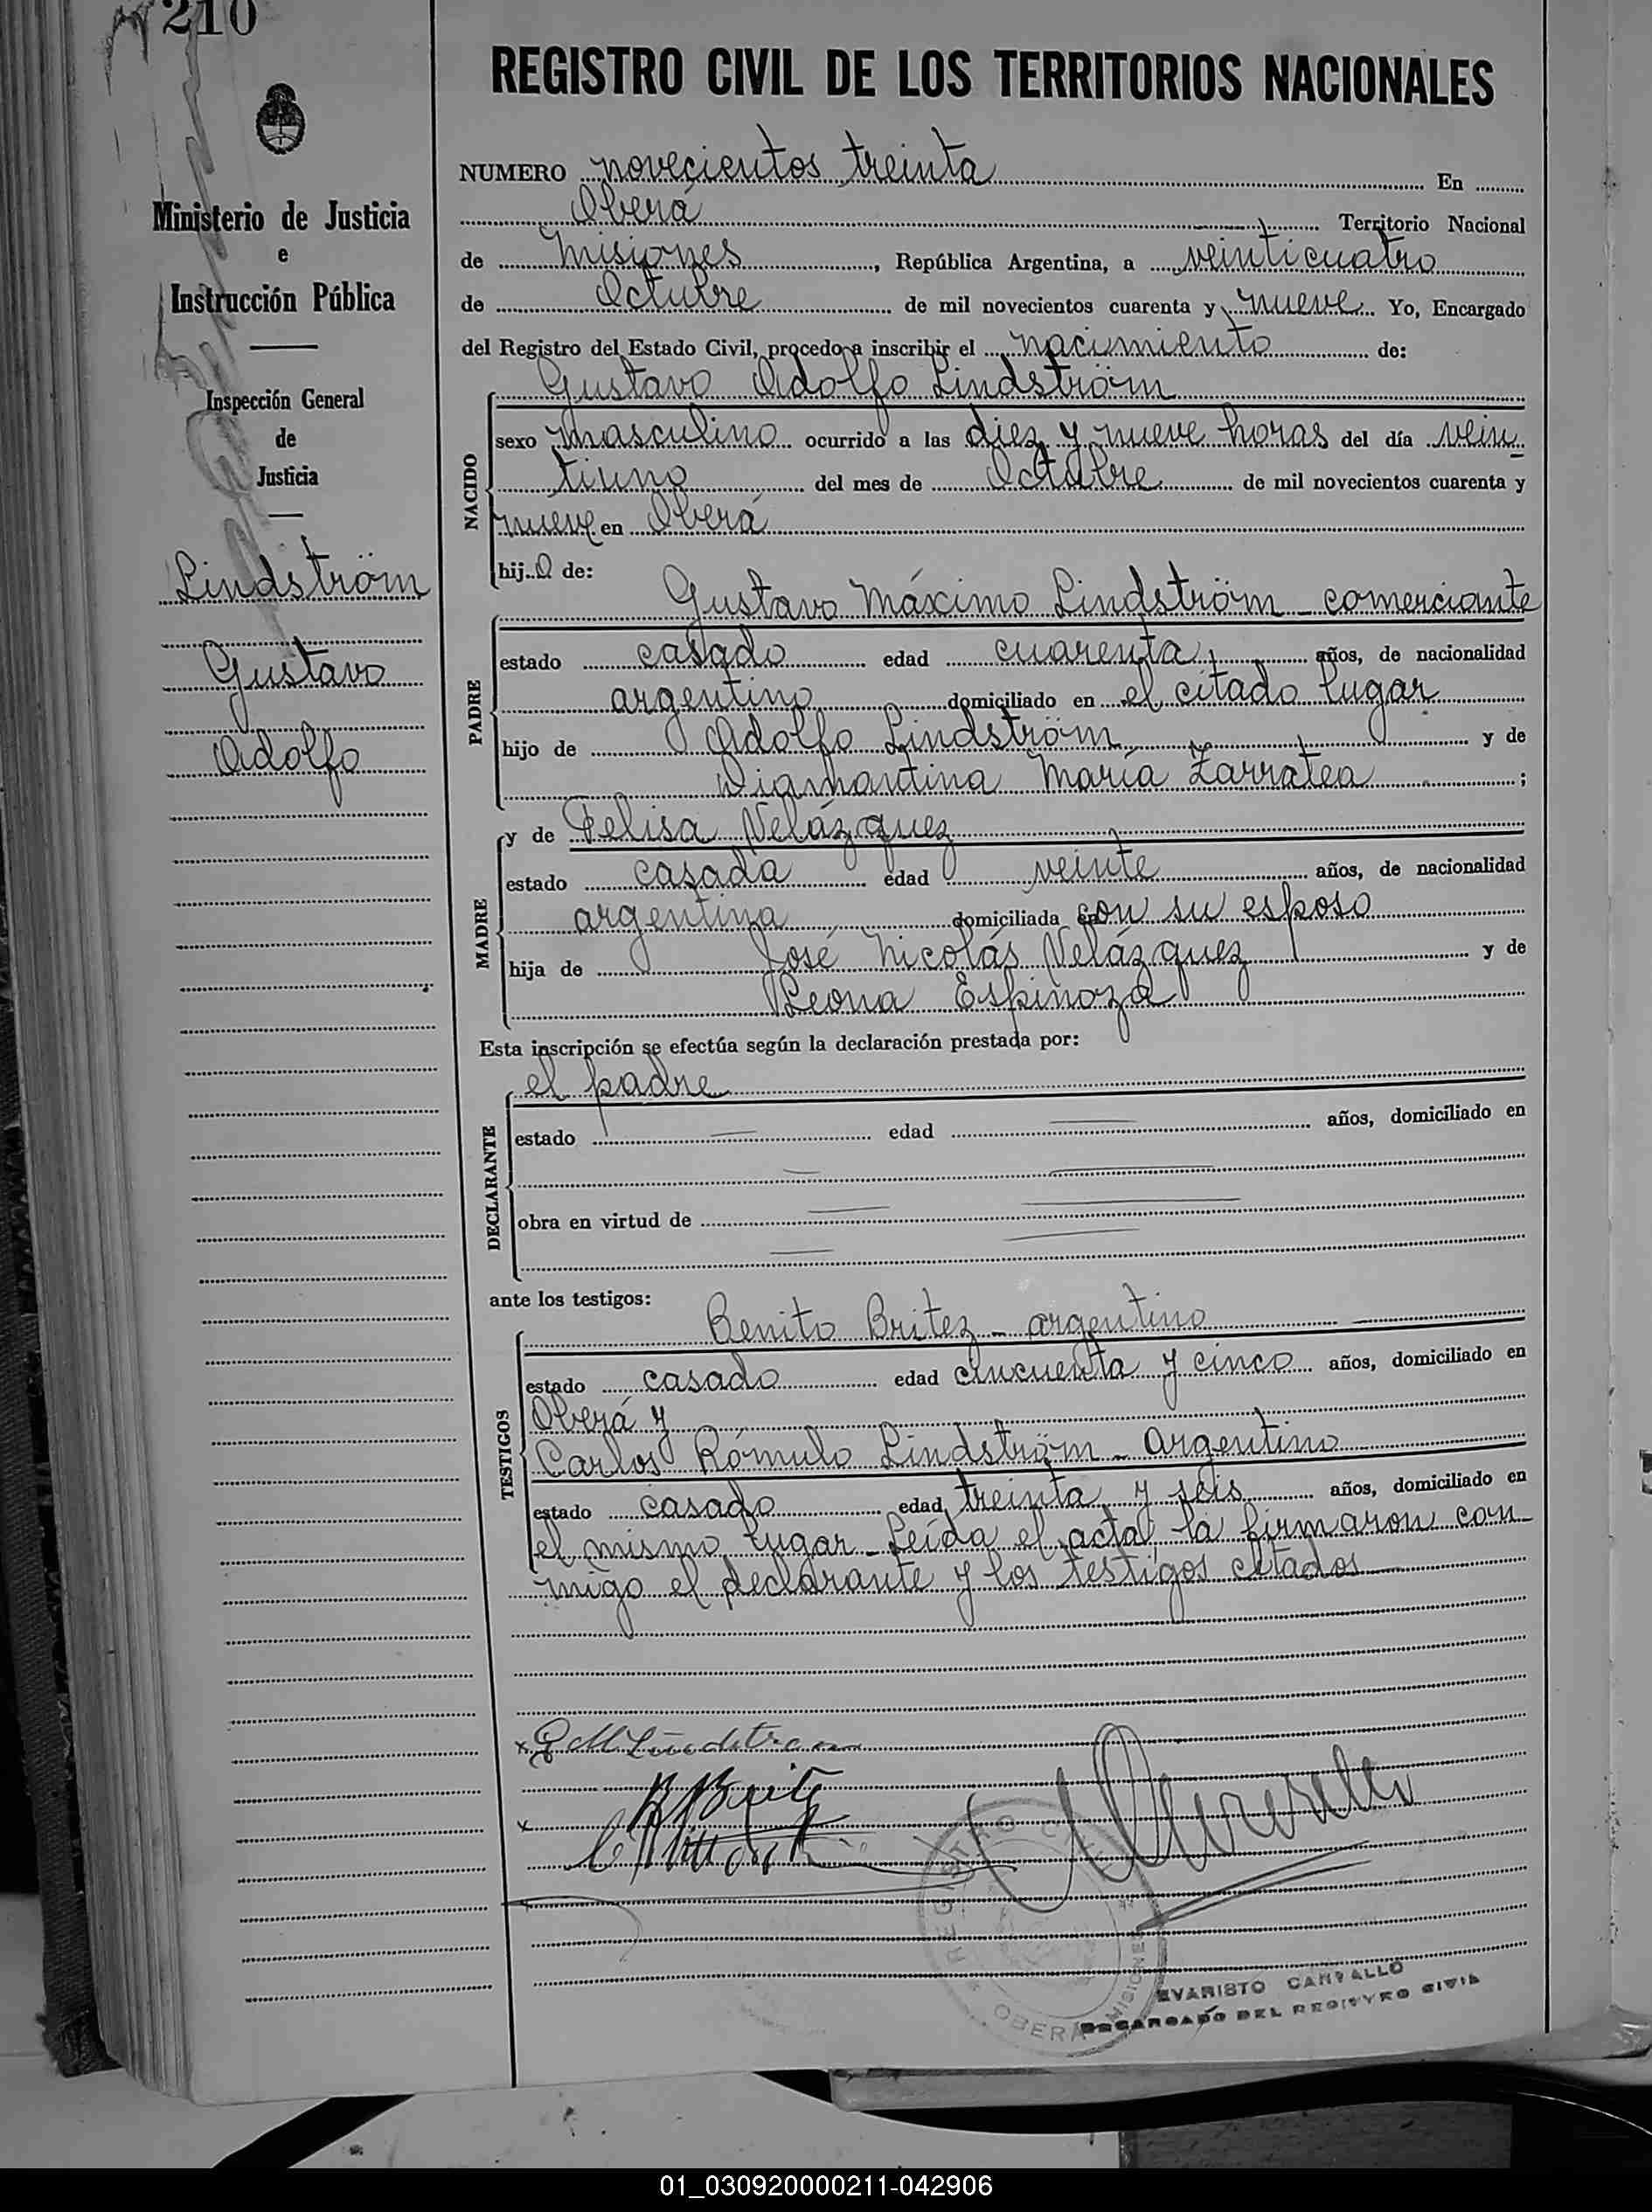 210
REGISTRO CIVIL DE LOS TERRITORIOS NACIONALES
Ministerio de Justicia
e
Instrucción Pública
Inspección General
de
Justicia
Lindström
Gustavo
Adolfo
NUMERO novecientos treinta En
Oberá Territorio Nacional
de Misiones, República Argentina, a veinticuatro
de Octubre de mil novecientos cuarenta y nueve Yo, Encargado
del Registro del Estado Civil, procedo a inscribir el nacimiento de:
Gustavo Adolfo Lindström
NACIDO
sexo masculino ocurrido a las diez y nueve horas del día vein
tiuno del mes de Octubre de mil novecientos cuarenta y
nueve en Oberá
hijo de:
Gustavo Máximo Lindström - comerciante
PADRE
estado casado edad cuarenta años, de nacionalidad
argentino domiciliado en el citado lugar
hijo de Adolfo Lindström y de
Diamantina María Zarratea;
MADRE
y de Felisa Velázquez
estado casada edad veinte años, de nacionalidad
argentina domiciliada con su esposo
hija de José Nicolás Velázquez y de
Leona Espinoza
Esta inscripción se efectúa según la declaración prestada por:
el padre
DECLARANTE
estado edad años, domiciliado en
obra en virtud de
ante los testigos:
Benito Britez - argentino
TESTIGOS
estado casado edad cincuenta y cinco años, domiciliado en
Oberá y
Carlos Rómulo Lindström - argentino
estado casado edad treinta y seis años, domiciliado en
el mismo lugar - Leída el acta, la firmaron con
migo el declarante y los testigos citados
x G M Lindstrom
x B Britez
REGISTRO CIVIL
OBERA MISIONES
EVARISTO CARVALLO
ENCARGADO DEL REGISTRO CIVIL
01_030920000211-042906